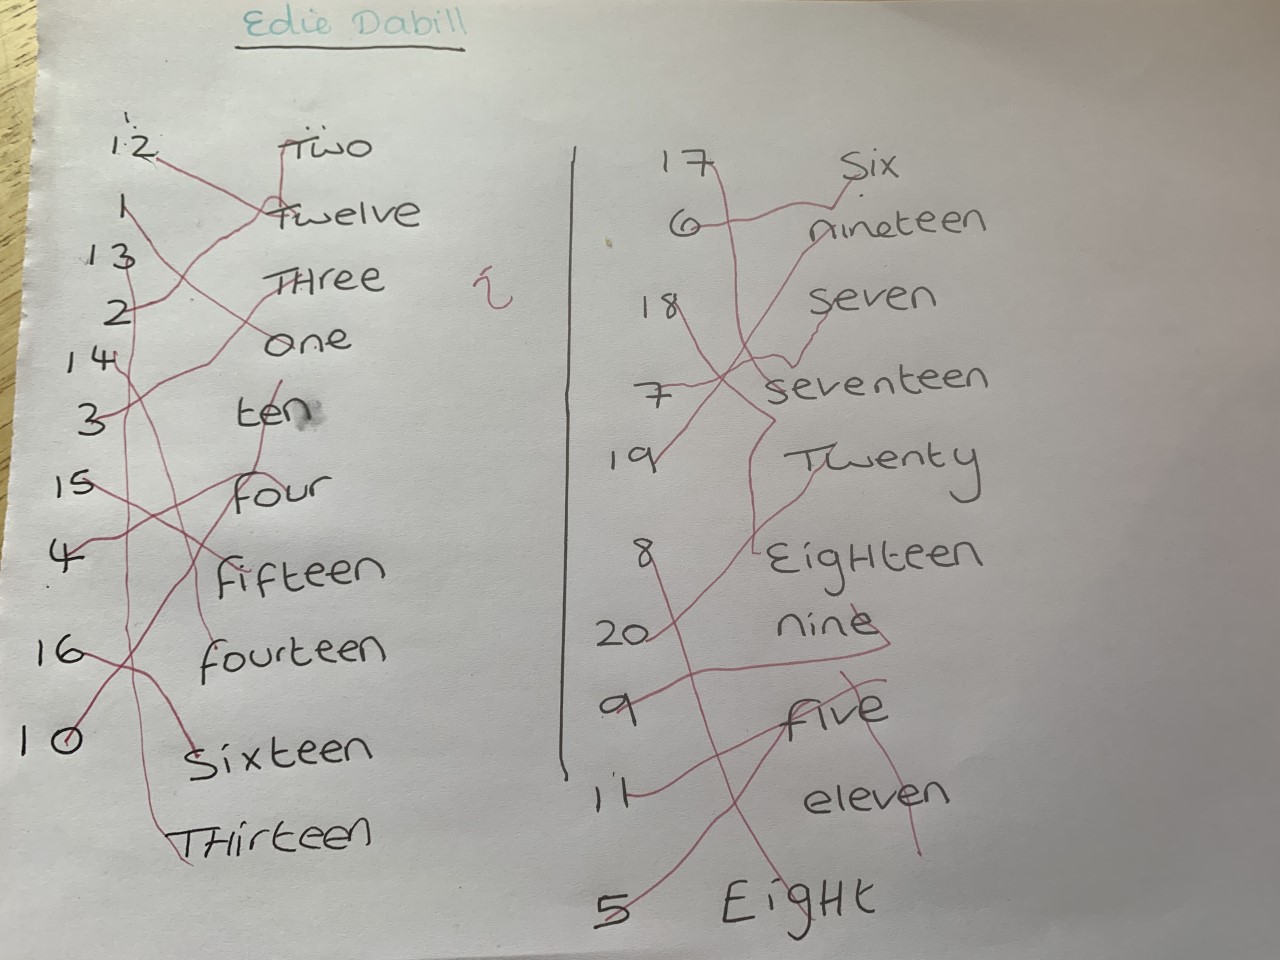 Edie Dabill
12 Two
1 Twelve
13 THree
2 one
14 ten
3 four
15 fifteen
4 fourteen
16 Sixteen
10 THirteen
i
17 Six
6 nineteen
18 seven
7 seventeen
19 Twenty
8 EigHteen
20 nine
9 five
11 eleven
5 EigHt